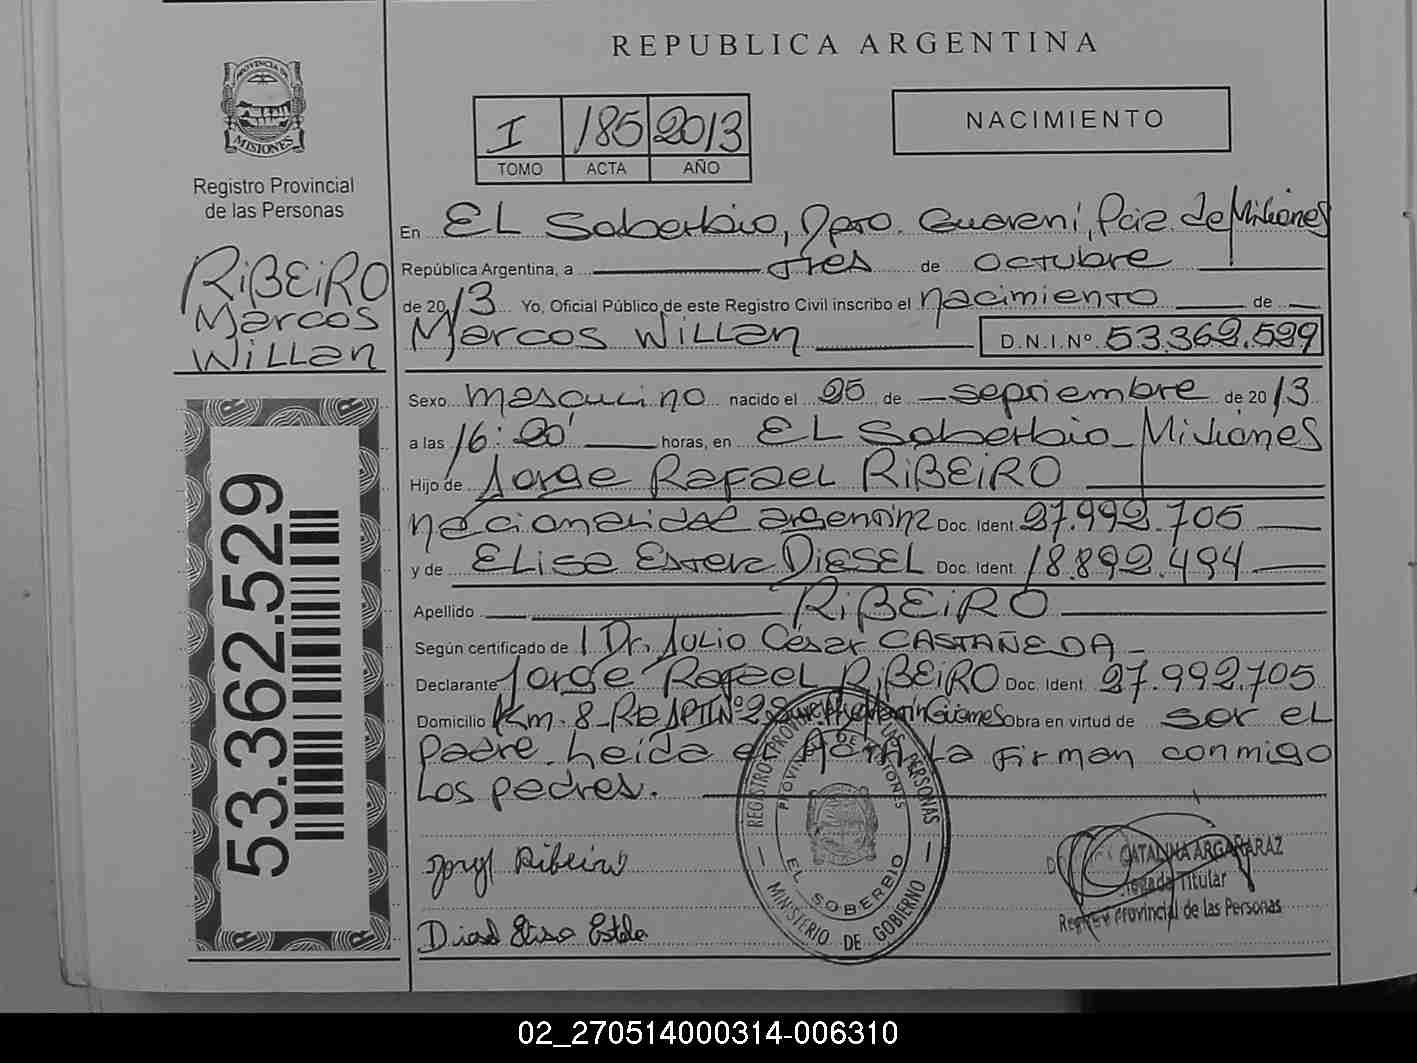 REPUBLICA ARGENTINA
PROVINCIA DE
MISIONES
Registro Provincial
de las Personas
RIBEIRO
Marcos
Willan
53.362.529
I 185 2013
TOMO ACTA AÑO
NACIMIENTO
En EL Soberbio, Dpto. Guarani, Pcia. de Misiones
República Argentina, a tres de octubre
de 2013 Yo, Oficial Público de este Registro Civil inscribo el nacimiento de
Marcos Willan D.N.I.Nº. 53.362.529
Sexo masculino nacido el 25 de septiembre de 2013
a las 16:20' horas, en EL Soberbio - Misiones
Hijo de Jorge Rafael RIBEIRO
nacionalidad argentina Doc. Ident. 27.992.705
y de Elisa Estera DIESEL Doc. Ident. 18.892.494
Apellido RIBEIRO
Según certificado de Dr. Julio César CASTAÑEDA
Declarante Jorge Rafael RIBEIRO Doc. Ident. 27.992.705
Domicilio Km. 8 Güemes Obra en virtud de ser el
padre. Leida el Acta la firman conmigo
los padres.
Ribeiro
Elisa
REGISTRO PROVINCIAL DE LAS PERSONAS
PROVINCIA DE MISIONES
EL SOBERBIO
MINISTERIO DE GOBIERNO
CATALINA ARGAÑARAZ
Delegada Titular
Registro Provincial de las Personas
02_270514000314-006310